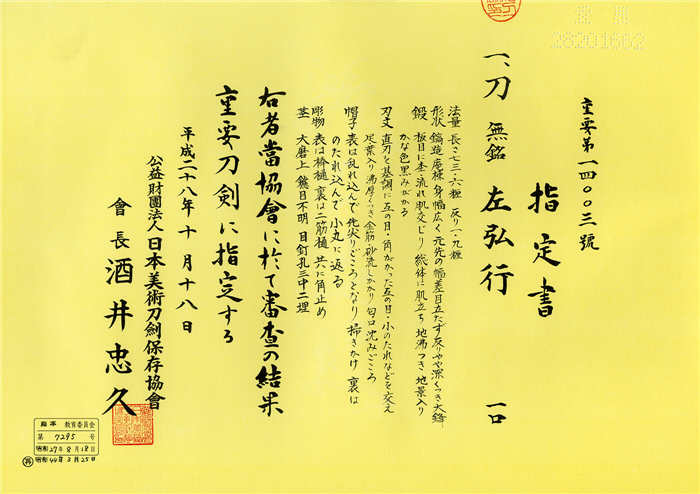 重要第一四〇〇三號
指定書
一、刀 無銘 左弘行 一口
法量 長さ七三・六糎 反り一・九糎
形状 鎬造 庵棟 身幅広く 元先の幅差目立たず 反りやや深くつき 大鋒
鍛 板目に杢・流れ肌交じり 総体に肌立ち 地沸つき 地景入り
かな色黒みがかる
刃文 直刃を基調に五の目・角がかった五の目・小のたれなどを交え
足葉入り 沸厚くつき 金筋・砂流しかかり 匂口沈みごころ
帽子 表は乱れ込んで先尖りごころとなり 掃きかけ 裏は
のたれ込んで小丸に返る
彫物 表は棒樋 裏は二筋樋 共に角止め
茎 大磨上 鑢目不明 目釘孔三中二埋
右者當協會に於て審査の結果
重要刀剣に指定する
平成二十八年十月十八日
公益財團法人日本美術刀劍保存協會
會長 酒井忠久
教育委員会
第 7295 号
昭和27年8月18日
昭和44年3月25日